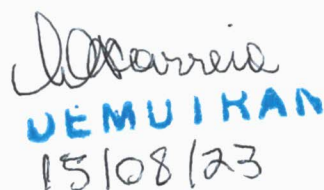 DEMUTRAN
15/08/23